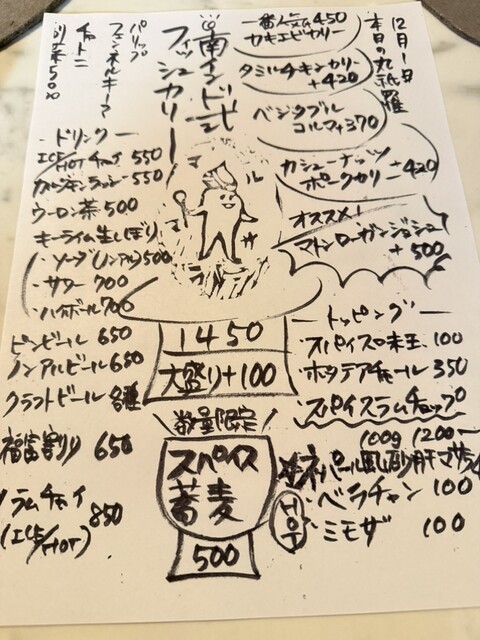 12月1日
本日の丸祇羅
一番人気ム450
カキエビカリー
タミルチキンカリー
+420
ベジタブル
コルマ+370
カシューナッツ
ポークカリー +420
オススメ!
マトンローガンジョシュ
+500
南インド式
フィッシュカリー
パリップ
フェンネルキーマ
チャトニ
副菜500
マ
ル
サ
1450
大盛り+100
数量限定
スパイス
蕎麦
500
ードリンクー
ICE/HOTチャイ 550
カルダモンラッシー550
ウーロン茶500
キーライム生しぼり
・ソーダ(ノンアル)500
・サワー 700
・ハイボール700
ビンビール 650
ノンアルビール650
クラフトビール 各種
福富割り 650
ラムチャイ
(ICE/HOT) 850
ートッピングー
・スパイス味玉 100
・ホタテアチャール 350
・スパイスラムチョップ
100g 1200ー
ネパール風砂肝マサラ
HOT
・ベラチャン 100
・ミモザ 100